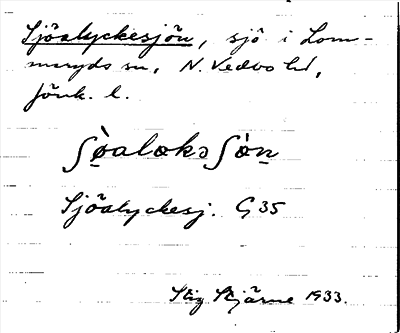 Sjöalyckesjön, sjö i Lom-
maryds sn, N. Vedbo hd,
Jönk. l.
ʃø̀alɔkəʃø̀n
Sjöalyckesj. G 35
Stig Stjärne 1933.